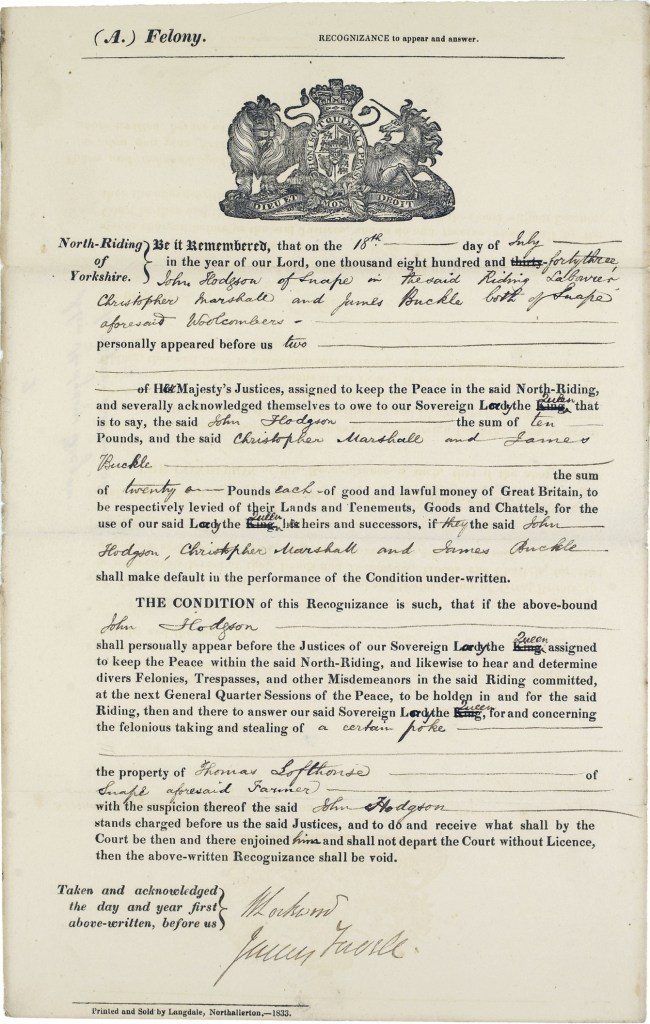 (A.) Felony.
RECOGNIZANCE to appear and answer.
HONI SOIT QUI MAL Y PENSE
DIEU ET MON DROIT
North-Riding of Yorkshire.
Be it Remembered, that on the 18th day of July
in the year of our Lord, one thousand eight hundred and thirty forty three,
John Hodgson of Snape in the said Riding Labourer
Christopher Marshall and James Buckle both of Snape
aforesaid Woolcombers
personally appeared before us two
of Her Majesty's Justices, assigned to keep the Peace in the said North-Riding,
and severally acknowledged themselves to owe to our Sovereign Lady the King Queen that
is to say, the said John Hodgson the sum of ten
Pounds, and the said Christopher Marshall and James
Buckle
the sum
of twenty Pounds each of good and lawful money of Great Britain, to
be respectively levied of their Lands and Tenements, Goods and Chattels, for the
use of our said Lady the King Queen heirs and successors, if they the said John
Hodgson, Christopher Marshall and James Buckle
shall make default in the performance of the Condition under-written.
THE CONDITION of this Recognizance is such, that if the above-bound
John Hodgson
shall personally appear before the Justices of our Sovereign Lady the King Queen assigned
to keep the Peace within the said North-Riding, and likewise to hear and determine
divers Felonies, Trespasses, and other Misdemeanors in the said Riding committed,
at the next General Quarter Sessions of the Peace, to be holden in and for the said
Riding, then and there to answer our said Sovereign Lady the King Queen, for and concerning
the felonious taking and stealing of a certain poke
the property of Thomas Lofthouse of
Snape aforesaid Farmer
with the suspicion thereof the said John Hodgson
stands charged before us the said Justices, and to do and receive what shall by the
Court be then and there enjoined him and shall not depart the Court without Licence,
then the above-written Recognizance shall be void.
Taken and acknowledged
the day and year first
above-written, before us
Printed and Sold by Langdale, Northallerton.—1833.